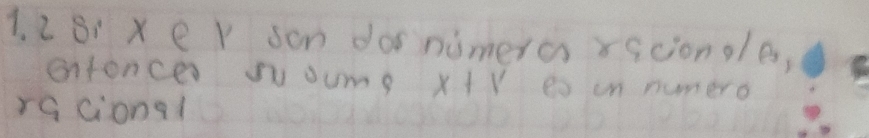 1.2 Si x e y son dos números racionales,
entonces su suma x+y es un numero
racional